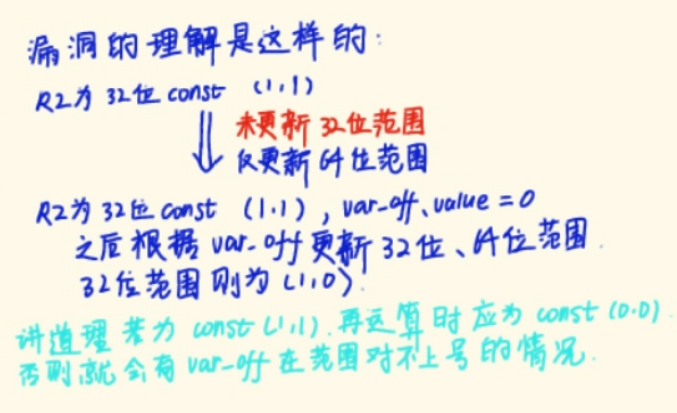 漏洞的理解是这样的:
R2为 32位 const (1,1)
未更新 32位范围
仅更新 64位范围
R2为 32位 const (1,1), var_off.value = 0
之后根据 var_off 更新 32位、64位范围.
32位范围则为 (1,0).
讲道理若为 const (1,1). 再运算时应为 const (0.0).
否则就会有 var_off 在范围对不上号的情况.